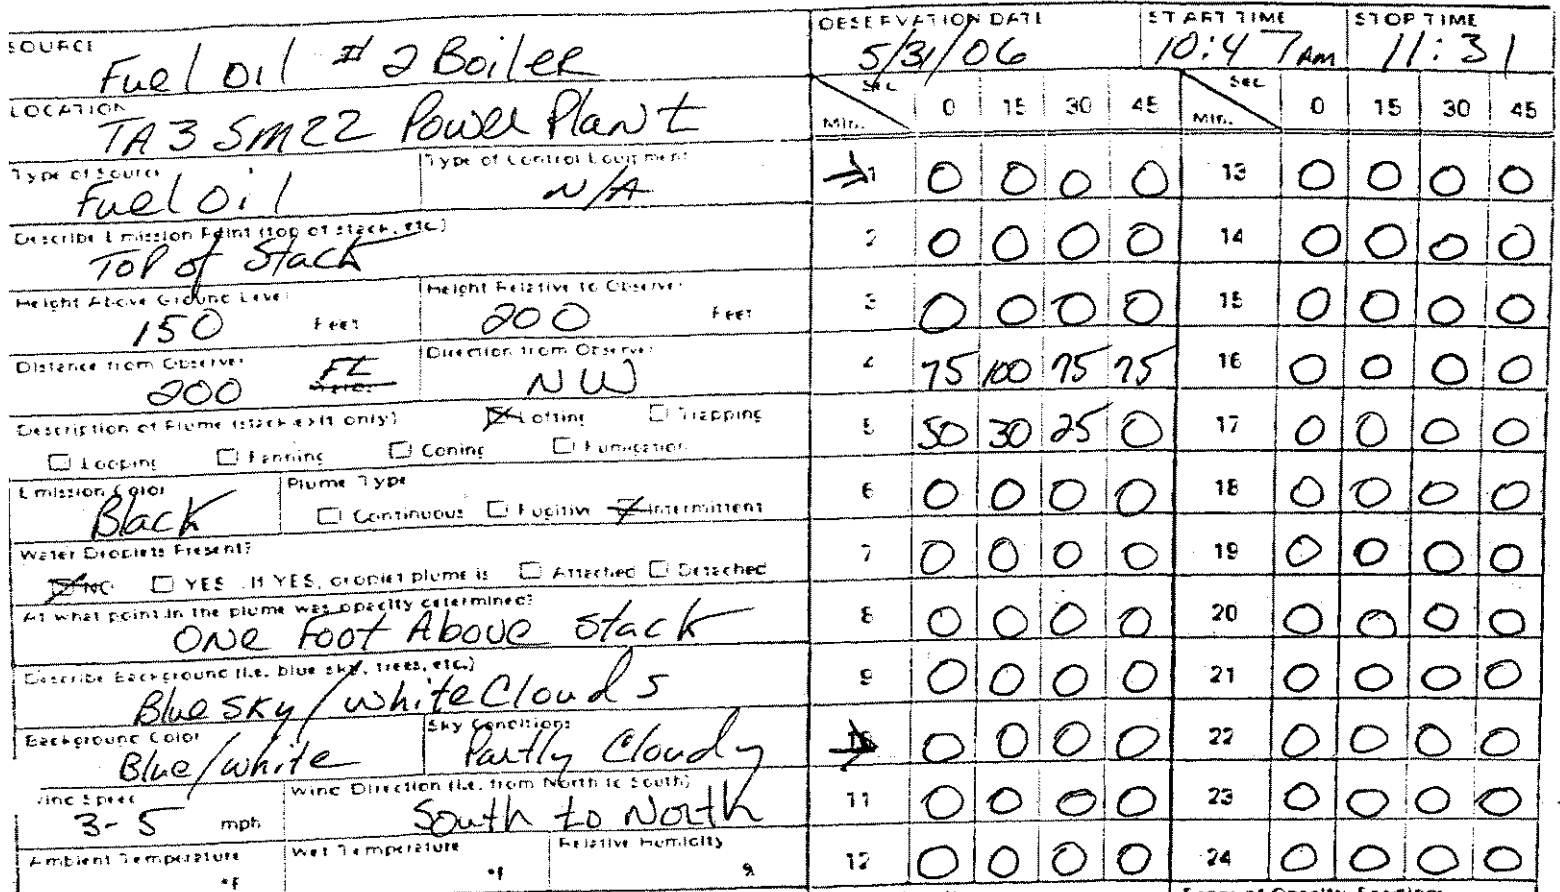 SOURCE
Fuel Oil # 2 Boiler
LOCATION
TA3 SM22 Power Plant
Type of Source
Fuel Oil
Type of Control Equipment
N/A
Describe Emission Point (top of stack, etc.)
Top of Stack
Height Above Ground Level
150 Feet
Height Relative to Observer
200 Feet
Distance from Observer
200 Ft
Direction from Observer
NW
Description of Plume (stack exit only)
Lofting
Trapping
Looping
Fanning
Coning
Fumigation
Emission Color
Black
Plume Type
Continuous
Fugitive
Intermittent
Water Droplets Present?
NO
YES . If YES, droplet plume is
Attached
Detached
At what point in the plume was opacity determined?
One Foot Above Stack
Describe Background (i.e. blue sky, trees, etc.)
Blue Sky / White Clouds
Background Color
Blue/White
Sky Conditions
Partly Cloudy
Wind Speed
3-5 mph
Wind Direction (i.e. from North to South)
South to North
Ambient Temperature
°F
Wet Temperature
°F
Relative Humidity
%
OBSERVATION DATE
5/31/06
START TIME
10:47 AM
STOP TIME
11:31
Sec
Min.
0 15 30 45
1 0 0 0 0
2 0 0 0 0
3 0 0 0 0
4 75 100 75 75
5 50 30 25 0
6 0 0 0 0
7 0 0 0 0
8 0 0 0 0
9 0 0 0 0
10 0 0 0 0
11 0 0 0 0
12 0 0 0 0
Sec
Min.
0 15 30 45
13 0 0 0 0
14 0 0 0 0
15 0 0 0 0
16 0 0 0 0
17 0 0 0 0
18 0 0 0 0
19 0 0 0 0
20 0 0 0 0
21 0 0 0 0
22 0 0 0 0
23 0 0 0 0
24 0 0 0 0